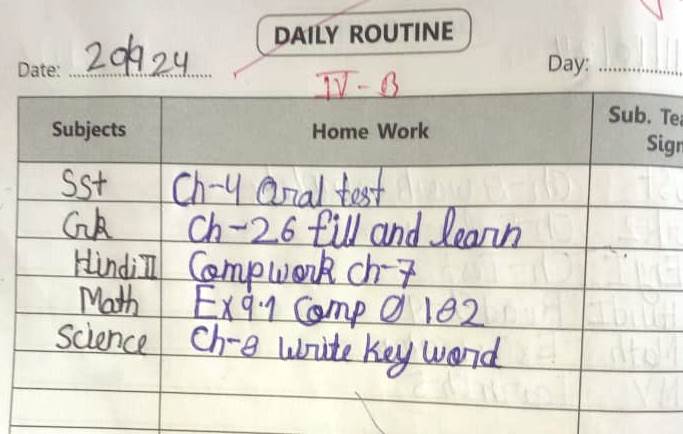 DAILY ROUTINE
Date: 20/9 24 Day:
IV - B
Subjects Home Work Sub. Tea Sign
Sst Ch-4 Oral test
Gk Ch-26 fill and learn
Hindi II Comp work ch-7
Math Ex 9.1 Comp Q 1 & 2
Science Ch-8 write key word